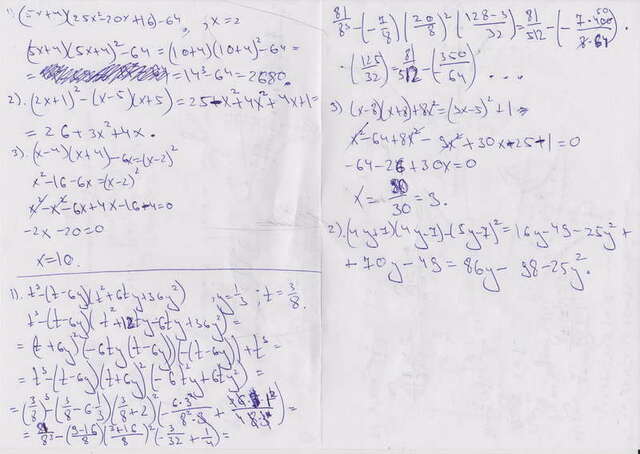 1) (5x+4)(25x²-20x+16)-64, ; x=2
(5x+4)(5x+4)²-64=(10+4)(10+4)²-64=
= =14³-64=2680.
2). (2x+1)²-(x-5)(x+5)=25-x²+4x²+4x+1=
=26+3x²+4x.
3). (x-4)(x+4)-6x=(x-2)²
x²-16-6x=(x-2)²
x²-x²-6x+4x-16-4=0
-2x-20=0
x=10.
1). t³-(t-6y)(t²+6ty+36y²) ; y=1/3 ; t=3/8.
t³-(t-6y)(t²+12ty-6ty+36y²)=
=(t+6y)²(-6ty(t-6y))(-(t-6y))+t³=
=t³-(t-6y)(t+6y)²(-6ty+6ty²)=
=(3/8)³-(3/8-6·1/3)(3/8+2)²
=81/8³-(3-16/8)(3+16/8)²(-3/32+1/4)=
81/8³-(-7/8)(20/8)²(128-3/32)=81/512-(-7·400/8·64)·
·(125/32)=81/512-(350/-64)...
3) (x-8)(x+8)+8x²=(3x-5)²+1
x²-64+8x²-9x²+30x-25+1=0
-64-26+30x=0
x=90/30=3.
2). (4y+7)(4y-7)-(5y-7)²=16y-49-25y²+
+70y-49=86y-98-25y².